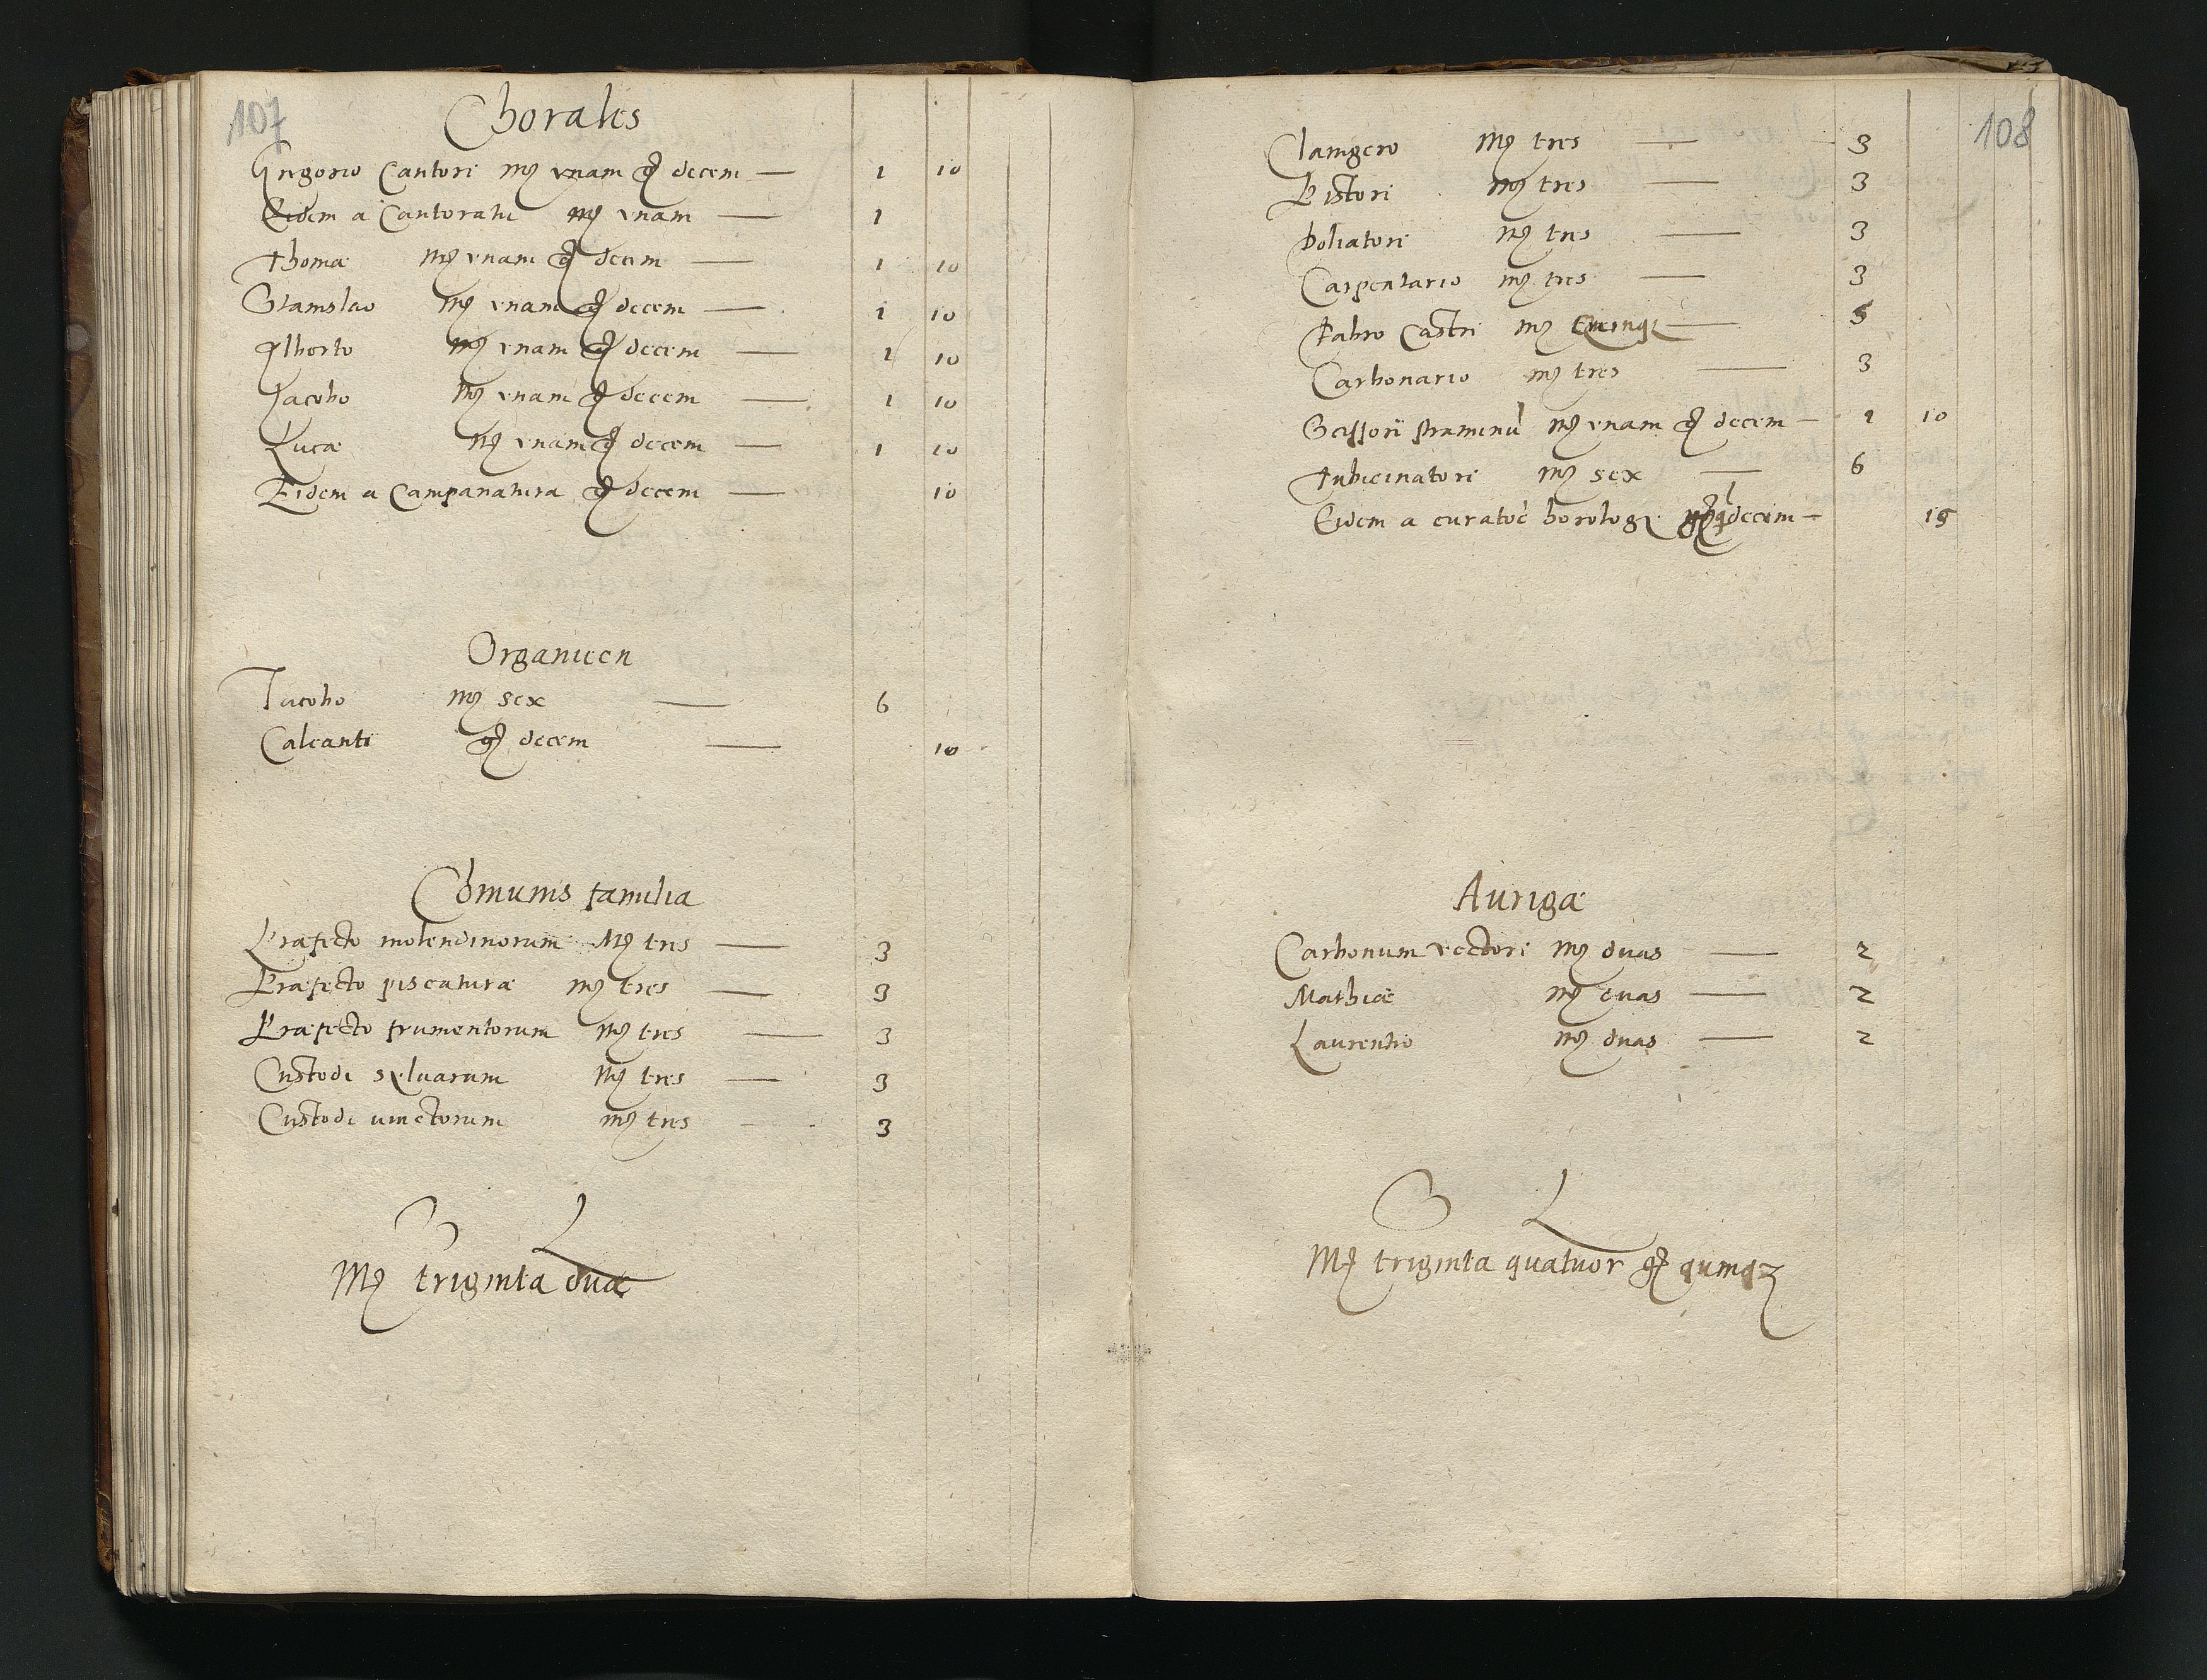 107
Chorales
Gregorio Cantori mȝ vnam gȝ decem — 1 10
Eidem a Cantoratu mȝ vnam — 1
Thomæ mȝ vnam gȝ decem — 1 10
Stanislao mȝ vnam gȝ decem — 1 10
Alberto mȝ vnam gȝ decem — 1 10
Jacobo mȝ vnam gȝ decem — 1 10
Lucæ mȝ vnam gȝ decem — 1 10
Eidem a Campanatura gȝ decem — 10
Organicen
Jacobo mȝ sex — 6
Calcanti gȝ decem — 10
Comunis familia
Præfecto molendinorum Mȝ tres — 3
Præfecto piscaturæ mȝ tres — 3
Præfecto frumentorum mȝ tres — 3
Custodi sylvarum mȝ tres — 3
Custodi vinctorum mȝ tres — 3
S L
Mȝ triginta duæ
108
Clavigero Mȝ tres — 3
Pistori mȝ tres — 3
Doliatori mȝ tres — 3
Carpentario mȝ tres — 3
Fabro Castri mȝ Quinqȝ — 5
Carbonario mȝ tres — 3
Scissori straminū mȝ vnam gȝ decem — 1 10
Tubicinatori mȝ sex — 6
Eidem a curatoē horologȳ decem — 15
Aurigæ
Carbonum vectori mȝ duas — 2
Mathiæ mȝ duas — 2
Laurentio mȝ duas — 2
S L
Mȝ triginta quatuor gȝ quinqȝ